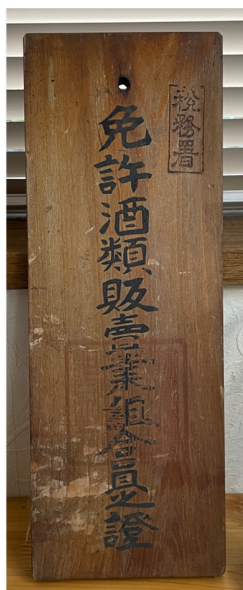 税務署
免許酒類販賣業組合員之證